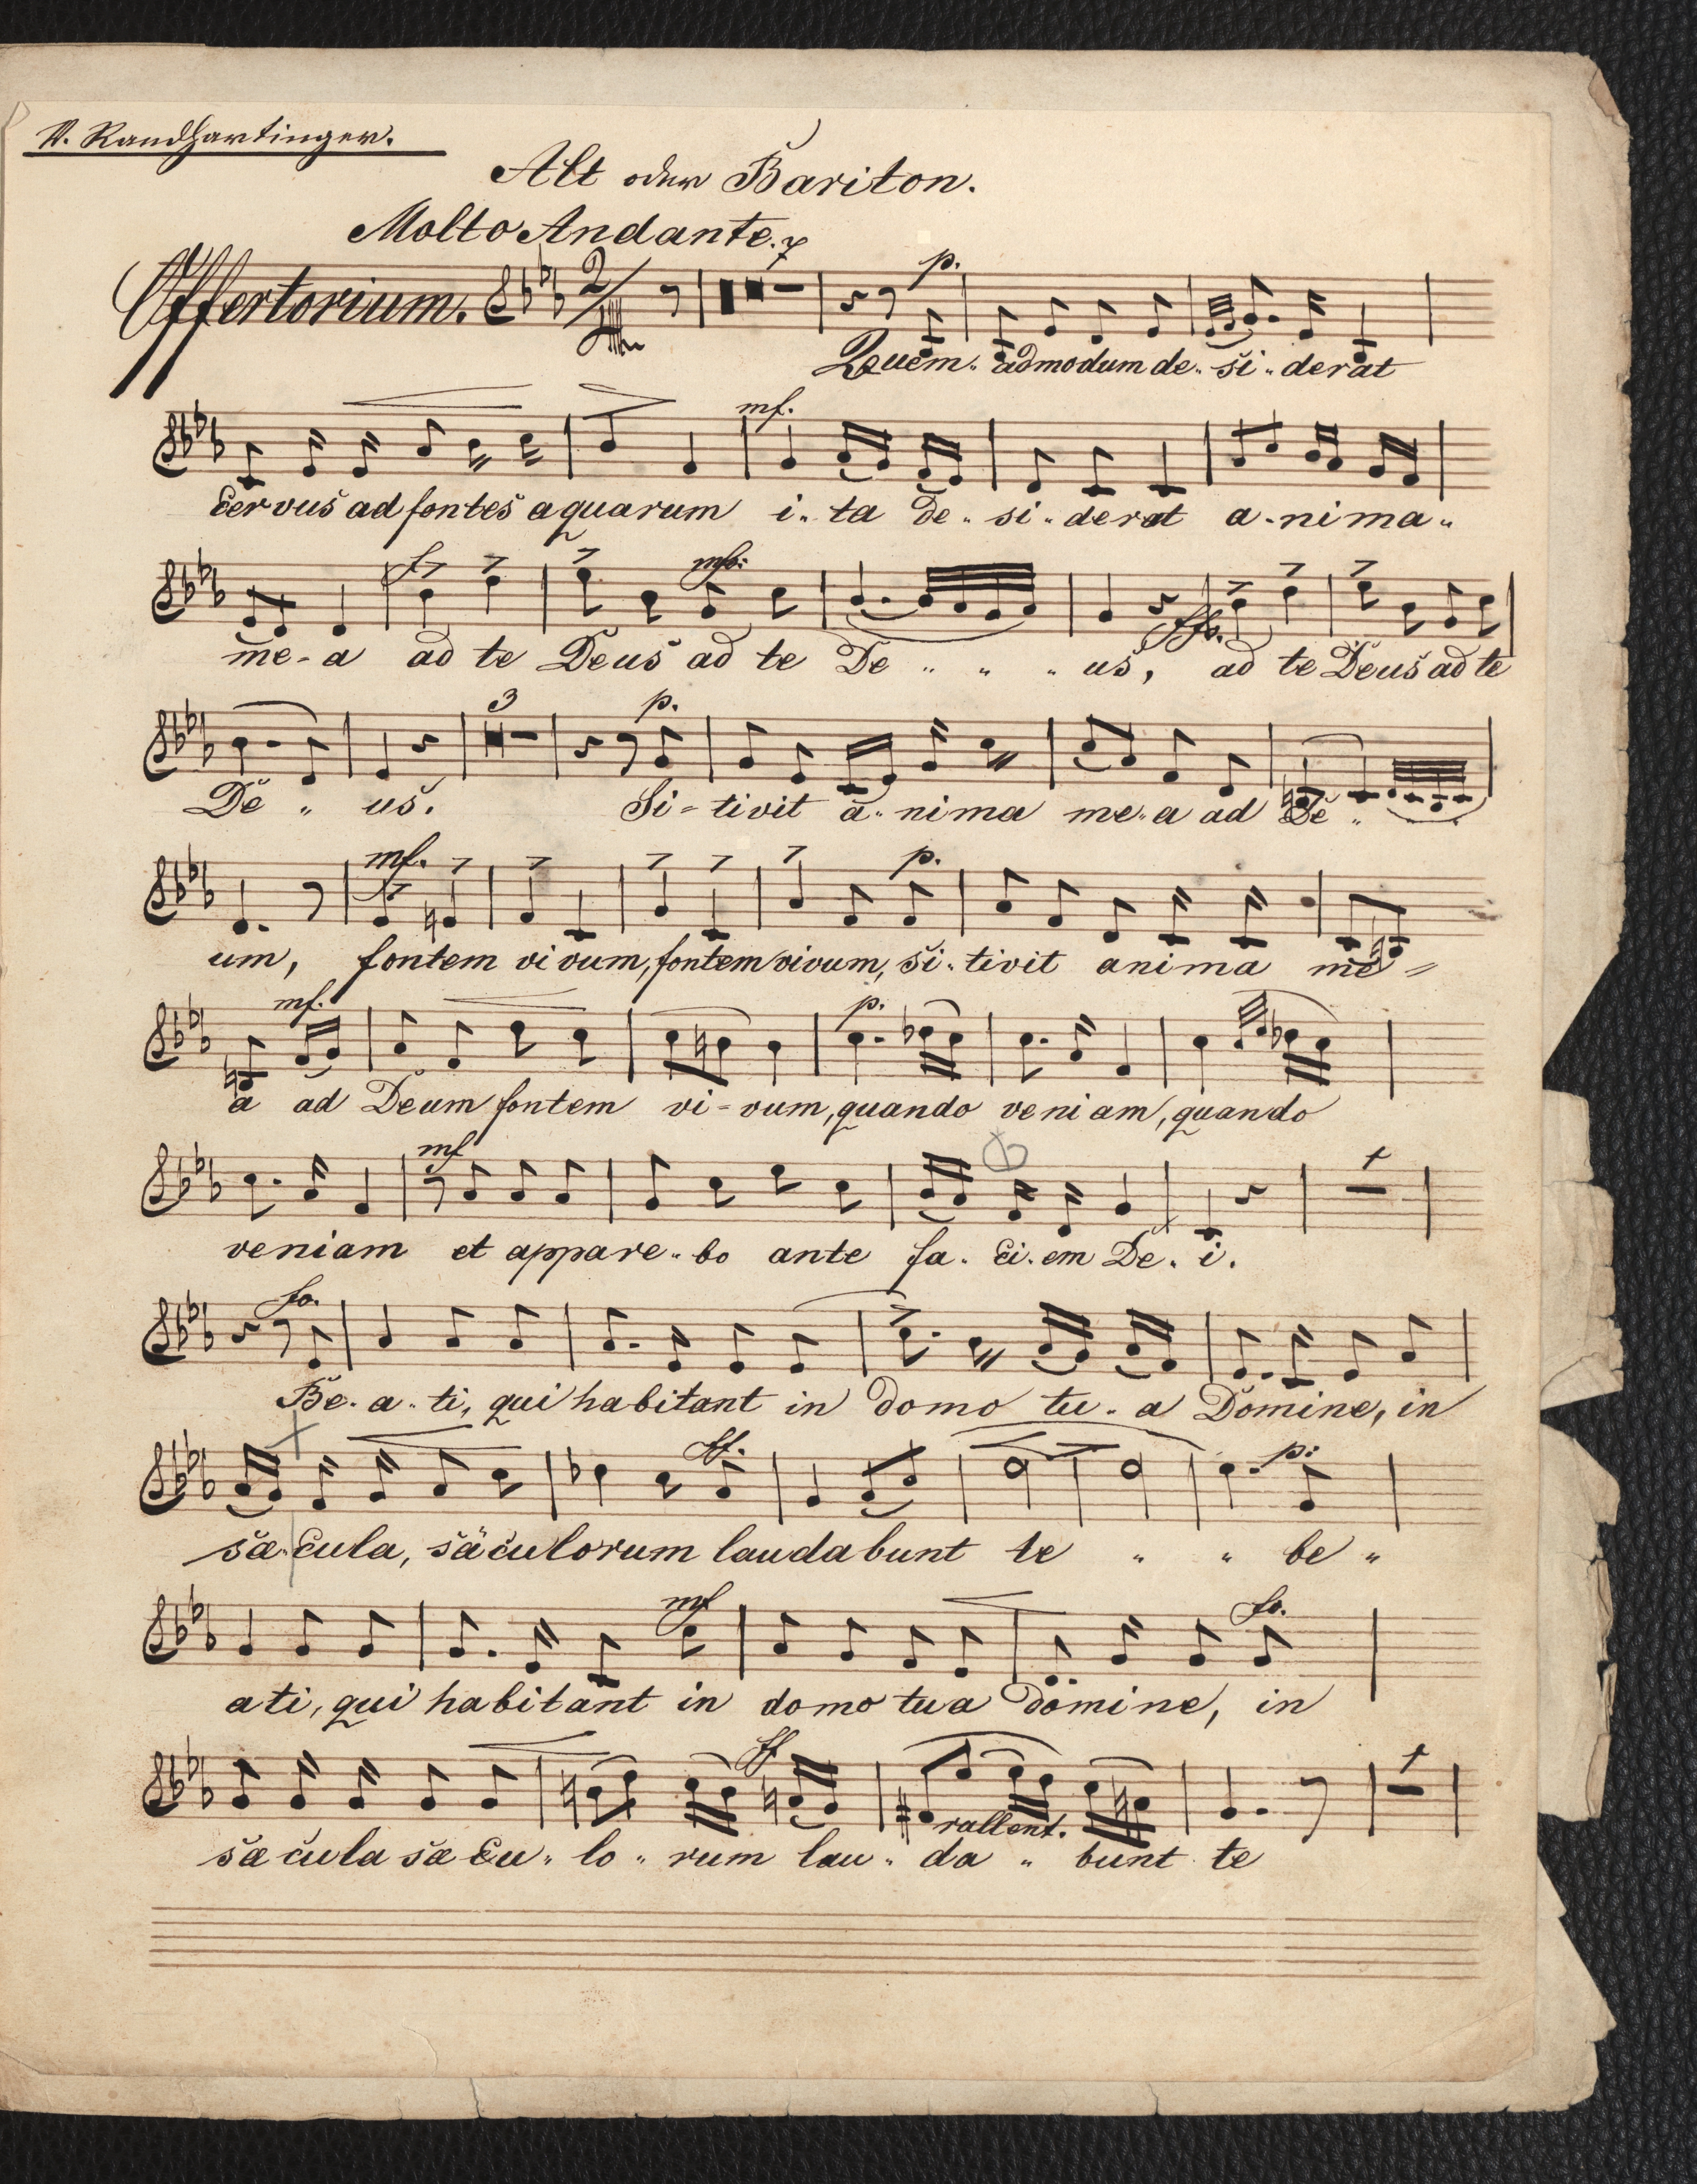 V. Randhartinger.
Alt oder Bariton.
Molto Andante. 7
Offertorium. 2/4 p.
Quem.. admodum de.. si.. derat
mf.
Cervus ad fontes aquarum i.. ta de.. si.. derat a.. ni ma..
f mfo: ffo.
me - a ad te Deus ad te De .. .. .. us, ad te Deus ad te
3 p.
De .. us. Si - tivit a.. nima me.. a ad De .. .. ..
mf. p.
um, fontem vivum, fontem vivum, si.. tivit anima me =
mf. p.
a ad Deum fontem vi - vum, quando veniam, quando
mf 1
veniam et appare.. bo ante fa. ci. em De. i.
fo.
Be. a. ti, qui habitant in domo tu. a Domine, in
ff. p:
sæ.. cula, säculorum laudabunt te .. .. be ..
mf fo.
ati, qui habitant in domo tua domine, in
ff 1
rallent.
sæcula sæcu.. lo.. rum lau.. da .. bunt te